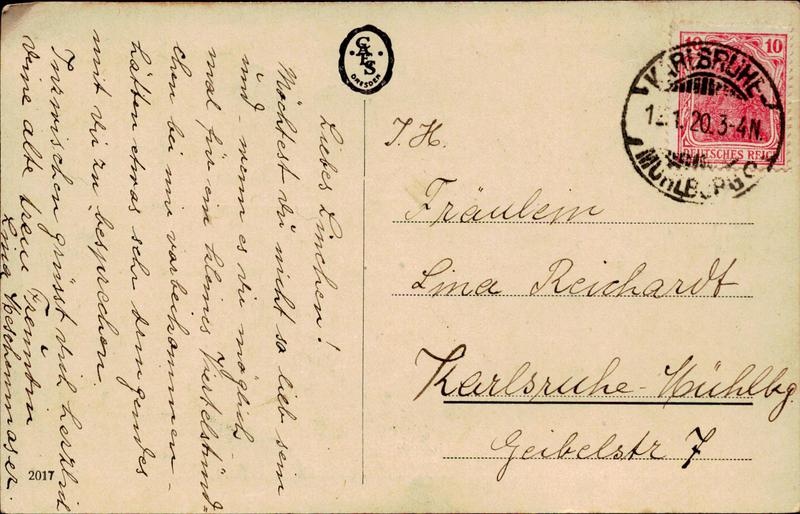 Liebes Linchen!
Möchtest du nicht so lieb sein
und - wenn es dir möglich -
mal für ein kleines Viertelstünd=
chen bei mir vorbeikommen -
hätten etwas sehr dringendes
mit dir zu besprechen.
Inzwischen grüsst dich herzlich
Deine alte treue Freundin
Lina
CAFS
DRESDEN
2017
10 10
DEUTSCHES REICH
KARLSRUHE
1.20.3-4N.
MÜHLBURG
I.H.
Fräulein
Lina Reichardt
Karlsruhe-Mühlbg.
Geibelstr 7